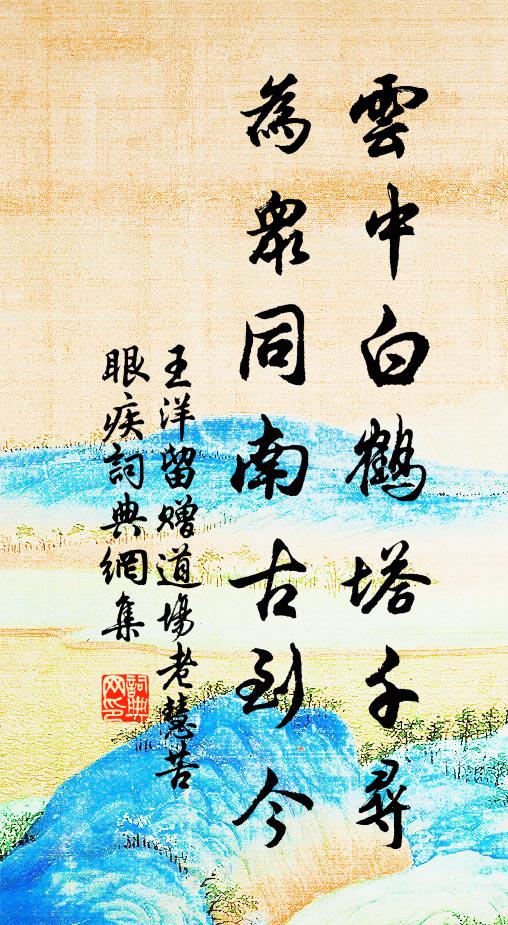 雲中白鶴塔千尋
為衆同南古到今
王洋留贈道場老慧苦
眼疾詞典網集
詞典網印